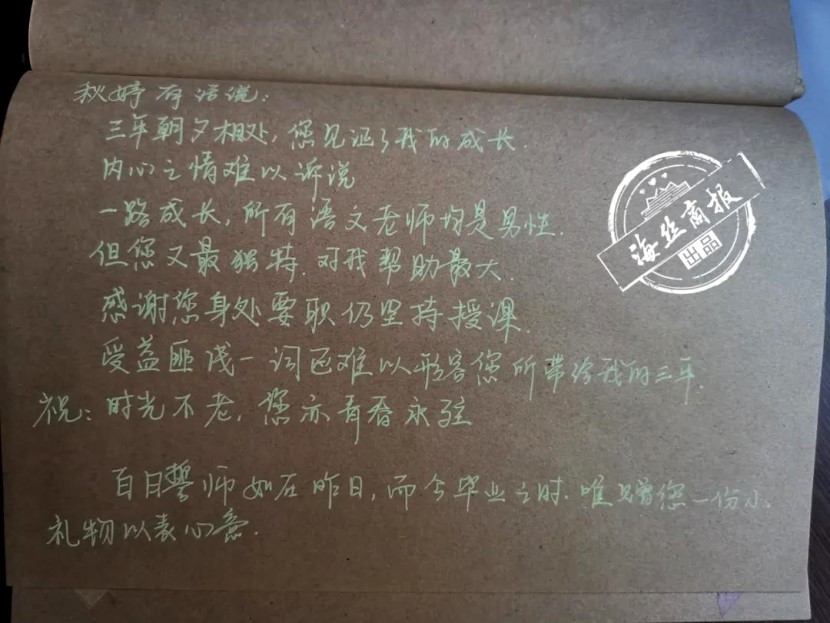 秋婷有话说：
三年朝夕相处，您见证了我的成长．
内心之情难以诉说
一路成长，所有语文老师均是男性．
但您又最独特．对我帮助最大．
感谢您身处要职仍坚持授课．
受益匪浅一词已难以形容您所带给我的三年．
祝：时光不老，您亦青春永驻
百日誓师如在昨日，而今毕业之时．唯赠您一份小
礼物以表心意．
海丝商报
出品